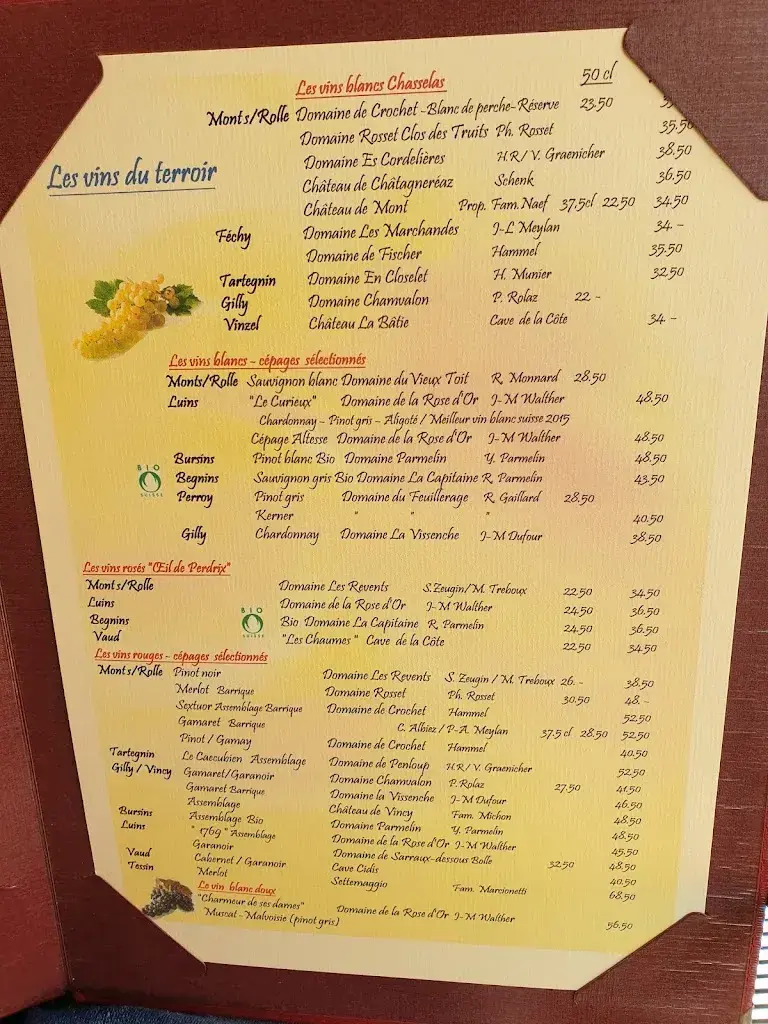 Les vins blancs Chasselas 50 cl
Monts/Rolle Domaine de Crochet - Blanc de perche - Réserve 23.50
Domaine Rosset Clos des Truits Ph. Rosset 35.50
Les vins du terroir
Domaine Es Cordelières H.R / V. Graenicher 38.50
Château de Châtagneréaz Schenk 36.50
Château de Mont Prop. Fam. Naef 37,5cl 22.50 34.50
Féchy Domaine Les Marchandes J-L Meylan 34.-
Domaine de Fischer Hammel 35.50
Tartegnin Domaine En Closelet H. Munier 32.50
Gilly Domaine Chamvalon P. Rolaz 22.-
Vinzel Château La Bâtie Cave de la Côte 34.-
Les vins blancs - cépages sélectionnés
Monts/Rolle Sauvignon blanc Domaine du Vieux Toit R. Monnard 28.50
Luins "Le Curieux" Domaine de la Rose d'Or J-M Walther 48.50
Chardonnay - Pinot gris - Aligoté / Meilleur vin blanc suisse 2015
Cépage Altesse Domaine de la Rose d'Or J-M Walther 48.50
Bursins Pinot blanc Bio Domaine Parmelin Y. Parmelin 48.50
BIO SUISSE
Begnins Sauvignon gris Bio Domaine La Capitaine R. Parmelin 43.50
Perroy Pinot gris Domaine du Feuillerage R. Gaillard 28.50
Kerner " " " 40.50
Gilly Chardonnay Domaine La Vissenche J-M Dufour 38.50
Les vins rosés "Œil de Perdrix"
Monts/Rolle Domaine Les Revents S.Zeugin/M. Treboux 22.50 34.50
Luins Domaine de la Rose d'Or J-M Walther 24.50 36.50
BIO SUISSE
Begnins Bio Domaine La Capitaine R. Parmelin 24.50 36.50
Vaud "Les Chaumes" Cave de la Côte 22.50 34.50
Les vins rouges - cépages sélectionnés
Monts/Rolle Pinot noir Domaine Les Revents S. Zeugin / M. Treboux 26.- 38.50
Merlot Barrique Domaine Rosset Ph. Rosset 30.50 48.-
Sextuor Assemblage Barrique Domaine de Crochet Hammel 52.50
Gamaret Barrique C. Albiez / P-A. Meylan 37.5 cl 28.50 52.50
Pinot / Gamay Domaine de Crochet Hammel 40.50
Tartegnin Le Caecubien Assemblage Domaine de Penloup H.R / V. Graenicher 52.50
Gilly / Vincy Gamaret/Garanoir Domaine Chamvalon P.Rolaz 27.50 41.50
Gamaret Barrique Domaine la Vissenche J-M Dufour 46.50
Assemblage Château de Vincy Fam. Michon 48.50
Bursins Assemblage Bio Domaine Parmelin Y. Parmelin 48.50
Luins "1769" Assemblage Domaine de la Rose d'Or J-M Walther 45.50
Garanoir Domaine de Sarraux-dessous Bolle 32.50 48.50
Vaud Cabernet / Garanoir Cave Cidis 40.50
Tessin Merlot Settemaggio Fam. Marcionetti 68.50
Le vin blanc doux
"Charmeur de ses dames" Domaine de la Rose d'Or J-M Walther 56.50
Muscat - Malvoisie (pinot gris)